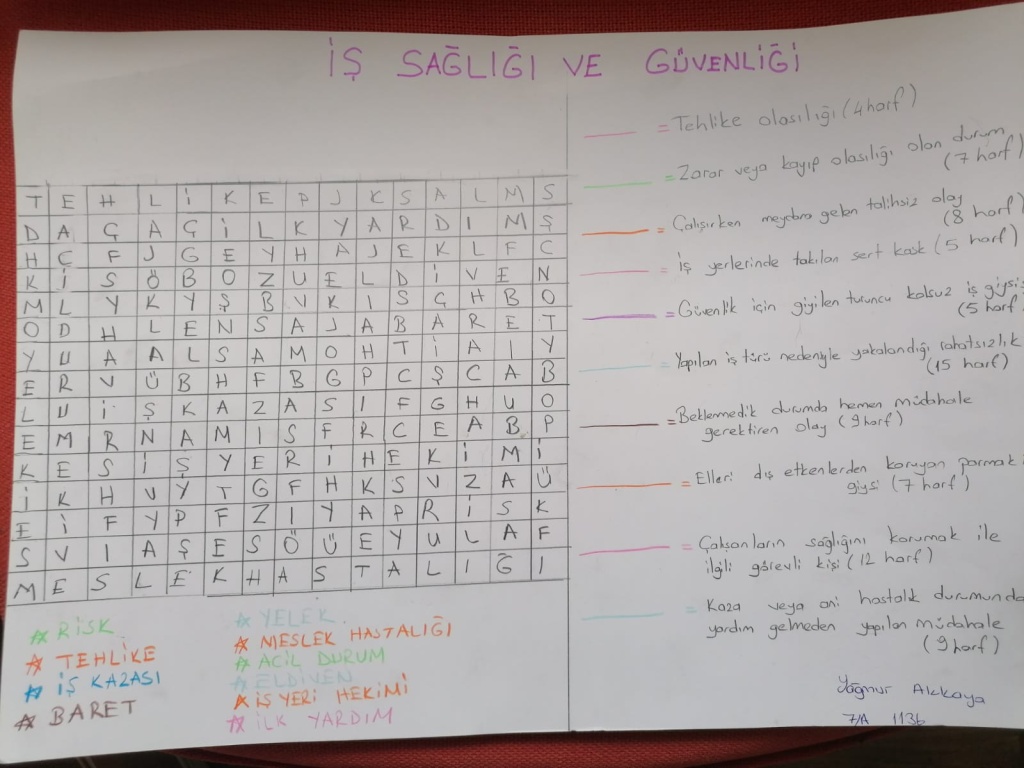 İŞ SAĞLIĞI VE GÜVENLİĞİ
T E H L İ K E P J K S A L M S
D A Ç A G İ L K Y A R D I M Ş
H Ç F J G E Y H A J E K L F C
K İ S Ö B O Z U E L D İ V E N
M L Y K Y Ş B V K I S G H B O
O D H L E N S A J A B A R E T
Y U A A L S A M O H T İ A I Y
E R V Ü B H F B G P C Ş C A B
L U İ Ş K A Z A S I F G H U O
E M R N A M I S F R C E A B P
K E S İ Ş Y E R İ H E K İ M İ
İ K H V Y T G F H K S V Z A Ü
E İ F Y P F Z I Y A P R İ S K
S V I A Ş E S Ö Ü E Y U L A F
M E S L E K H A S T A L I Ğ I
RİSK
TEHLİKE
İŞ KAZASI
BARET
YELEK
MESLEK HASTALIĞI
ACİL DURUM
ELDİVEN
İŞ YERİ HEKİMİ
İLK YARDIM
= Tehlike olasılığı (4 harf)
= Zarar veya kayıp olasılığı olan durum
(7 harf)
= Çalışırken meydana gelen talihsiz olay
(8 harf)
= İş yerlerinde takılan sert kask (5 harf)
= Güvenlik için giyilen turuncu kolsuz iş giysisi
(5 harf
= Yapılan iş türü nedeniyle yakalandığı rahatsızlık
(15 harf)
= Beklenmedik durumda hemen müdahale
gerektiren olay (9 harf)
= Elleri dış etkenlerden koruyan parmak
giysi (7 harf)
= Çalışanların sağlığını korumak ile
ilgili görevli kişi (12 harf)
= Kaza veya ani hastalık durumunda
yardım gelmeden yapılan müdahale
(9 harf)
Yağmur Akkaya
7/A 1136